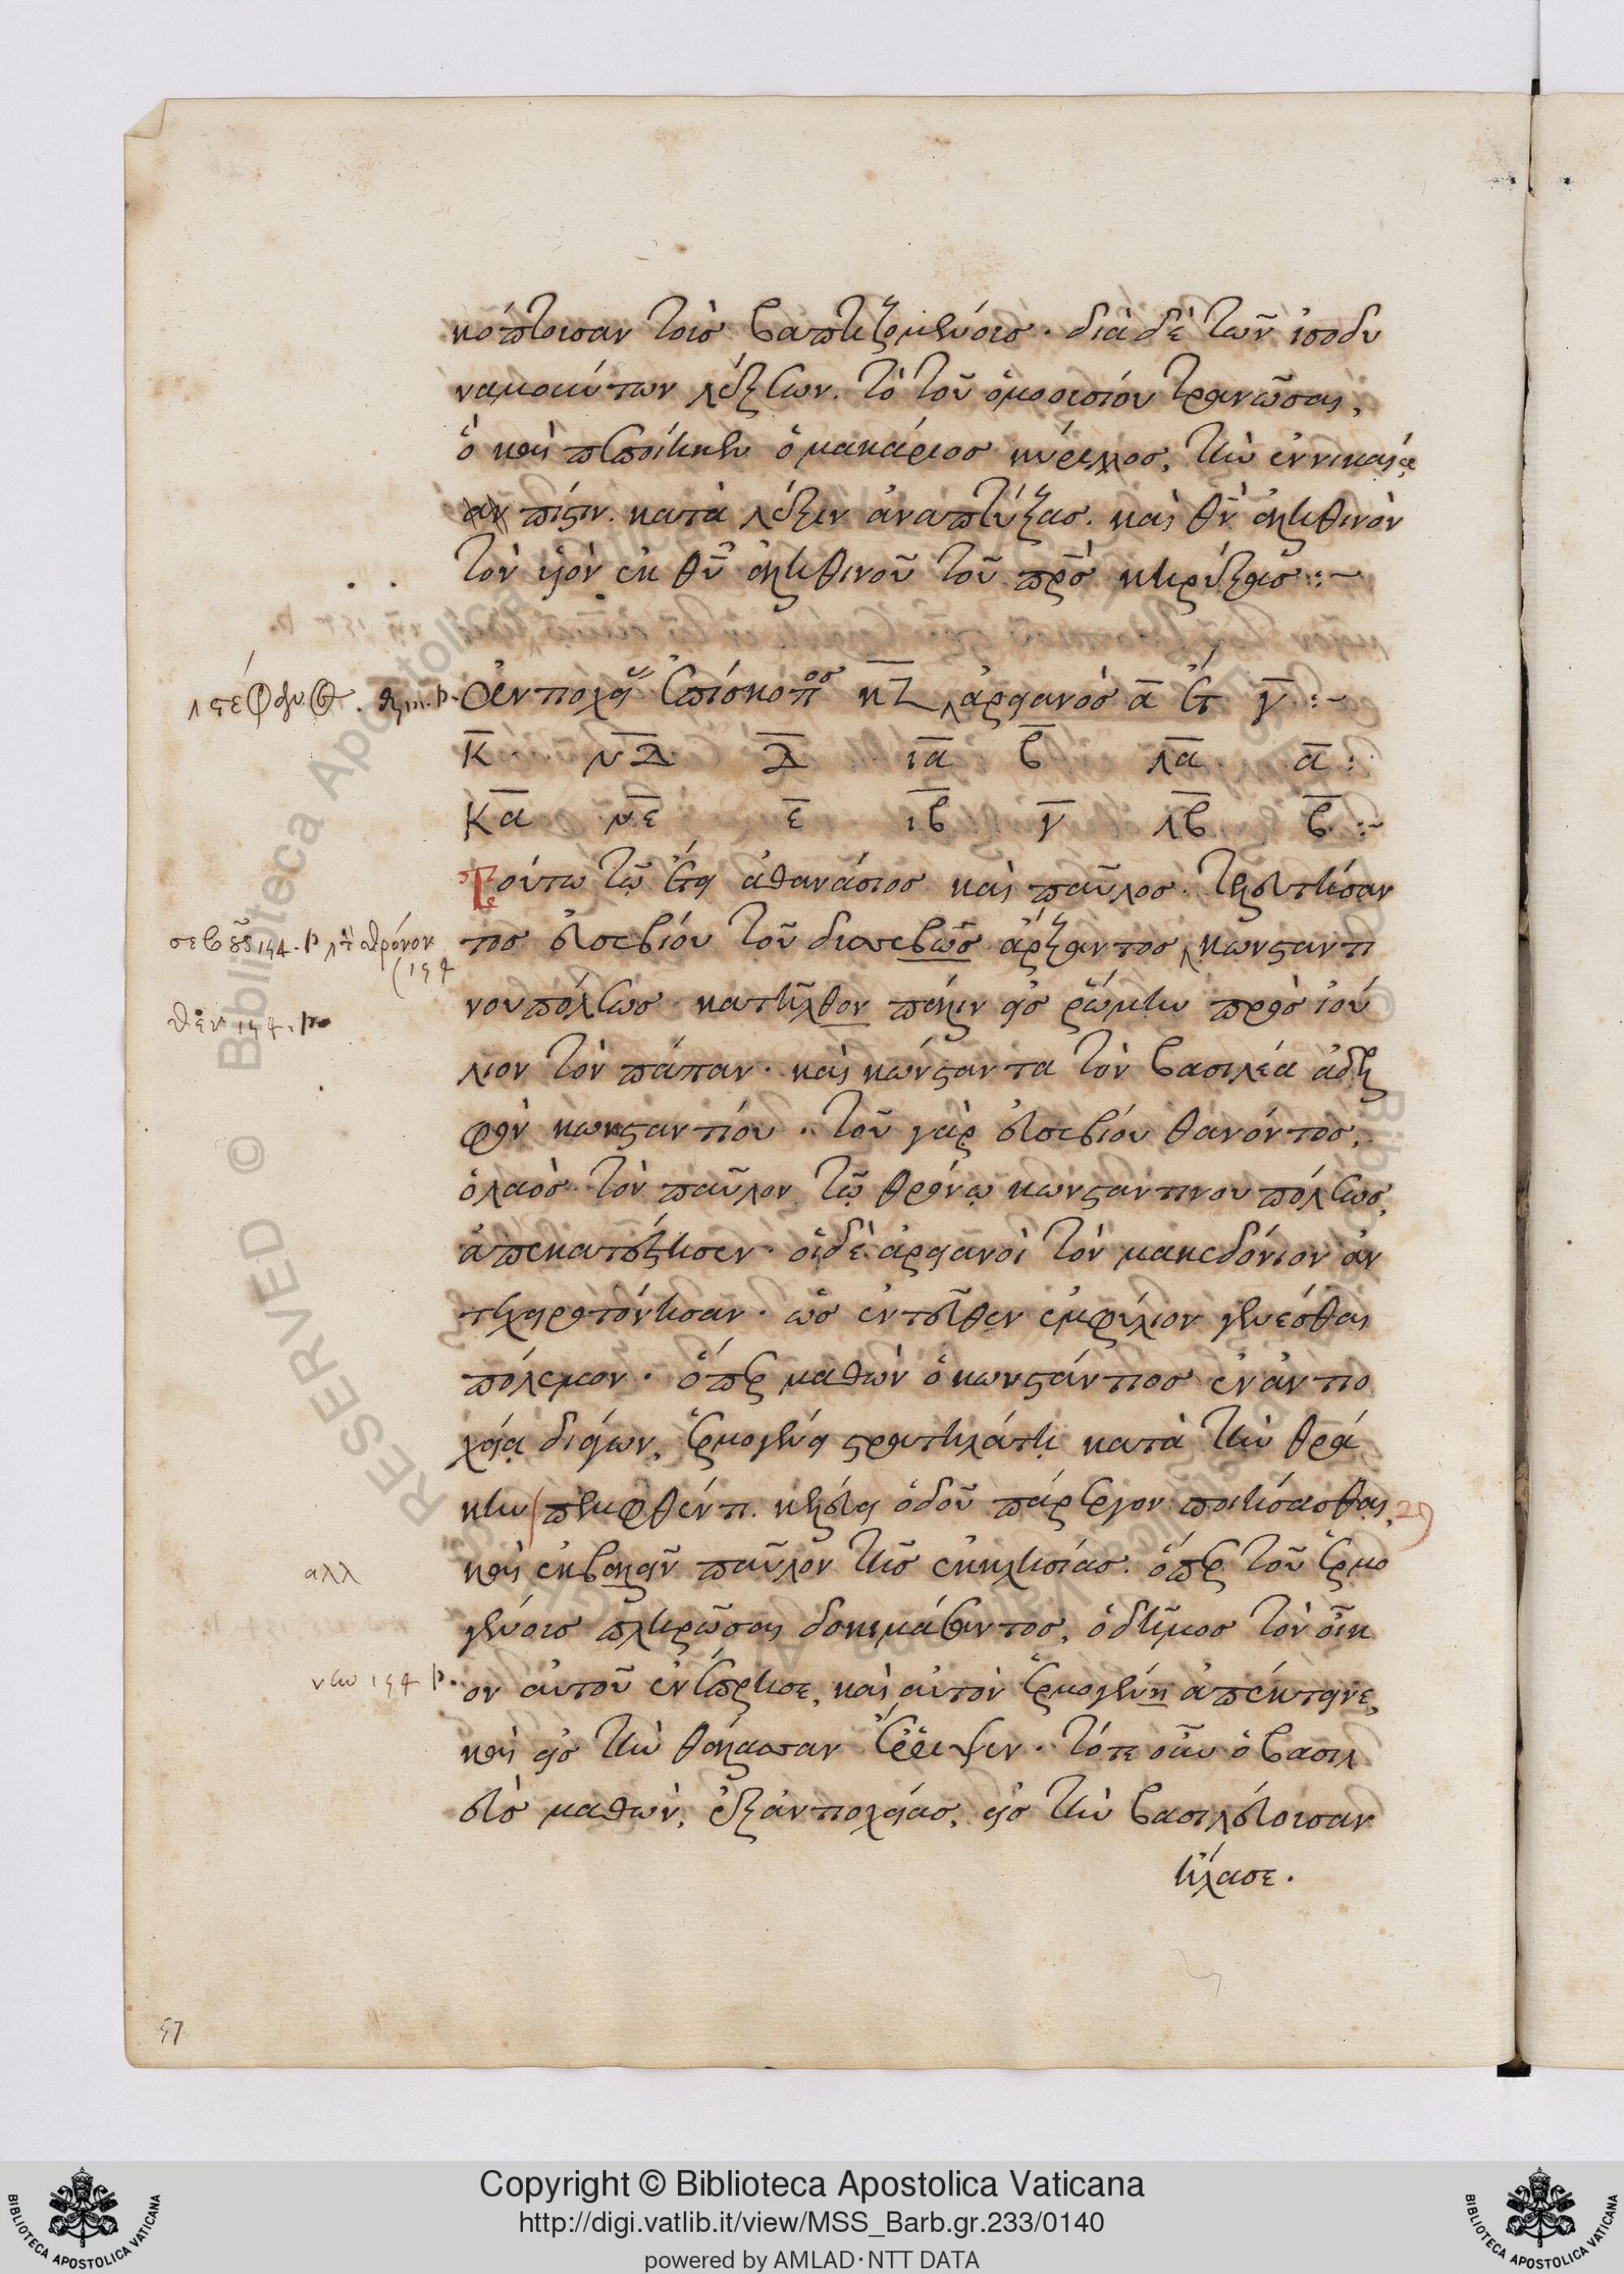 κόπτουσαν τοῖς βαπτιζομένοις · διὰ δὲ τῶν ἰσοδυ
ναμούντων λέξεων. τὸ τοῦ ὁμοουσίου τρανῶσαι,
ὃ καὶ πεποίηκεν ὁ μακάριος κύριλλος, τὴν ἐν νικαίᾳ
πίστιν. κατὰ λέξιν ἀναπτύξας. καὶ θν̄ ἀληθινὸν
τὸν υἱὸν ἐκ θῡ ἀληθινοῦ τοῦ πρ̄ς κηρύξας :~
Ἀντιοχείας ἐπίσκοπος κζ ἀρειανὸς α̅ ἔτη γ̅ :~
κ̅ ν̅δ̅ δ̅ ι̅α̅ β̅ λ̅α̅ α̅ :
κ̅α̅ ν̅ε̅ ε̅ ι̅β̅ γ̅ λ̅β̅ β̅ :~
Τούτῳ τῷ ἔτει ἀθανάσιος καὶ παῦλος. τελευτήσαν
τος εὐσεβίου τοῦ δυσσεβῶς ἄρξαντος κωνσταντι
νουπόλεως κατῆλθον πάλιν εἰς ῥώμην πρὸς ἰού
λιον τὸν πάπαν · καὶ κώνσταντα τὸν βασιλέα ἀδελ
φὸν κωνσταντίου · τοῦ γὰρ εὐσεβίου θανόντος,
ὁ λαὸς τὸν παῦλον τῷ θρόνῳ κωνσταντινουπόλεως,
ἀπεκατέστησεν · οἱ δὲ ἀρειανοὶ τὸν μακεδόνιον ἀν
τεχειροτόνησαν · ὡς ἐντεῦθεν ἐμφύλιον γενέσθαι
πόλεμον · ὅπερ μαθὼν ὁ κωνστάντιος ἐν ἀντιο
χείᾳ διάγων, ἑρμογένει στρατηλάτῃ κατὰ τὴν θρᾴ
κην πεμφθέντι. κελεύει ὁδοῦ πάρεργον ποιήσασθαι, 29
καὶ ἐκβαλεῖν παῦλον τῆς ἐκκλησίας. ὅπερ τοῦ ἑρμο
γένους πληρῶσαι δοκιμάσαντος, ὁ δῆμος τὸν οἶκ
ον αὐτοῦ ἐνέπρησε, καὶ αὐτὸν ἑρμογένη ἀπέκτεινε,
καὶ εἰς τὴν θάλασσαν ἔρριψεν · τότε οὖν ὁ βασιλ
εὺς μαθὼν, ἐξ ἀντιοχείας, εἰς τὴν βασιλεύουσαν
ἤλασε.
αλλ
57
RESERVED © Biblioteca Apostolica Vaticana
Copyright © Biblioteca Apostolica Vaticana
http://digi.vatlib.it/view/MSS_Barb.gr.233/0140
powered by AMLAD·NTT DATA
BIBLIOTECA APOSTOLICA VATICANA
BIBLIOTECA APOSTOLICA VATICANA